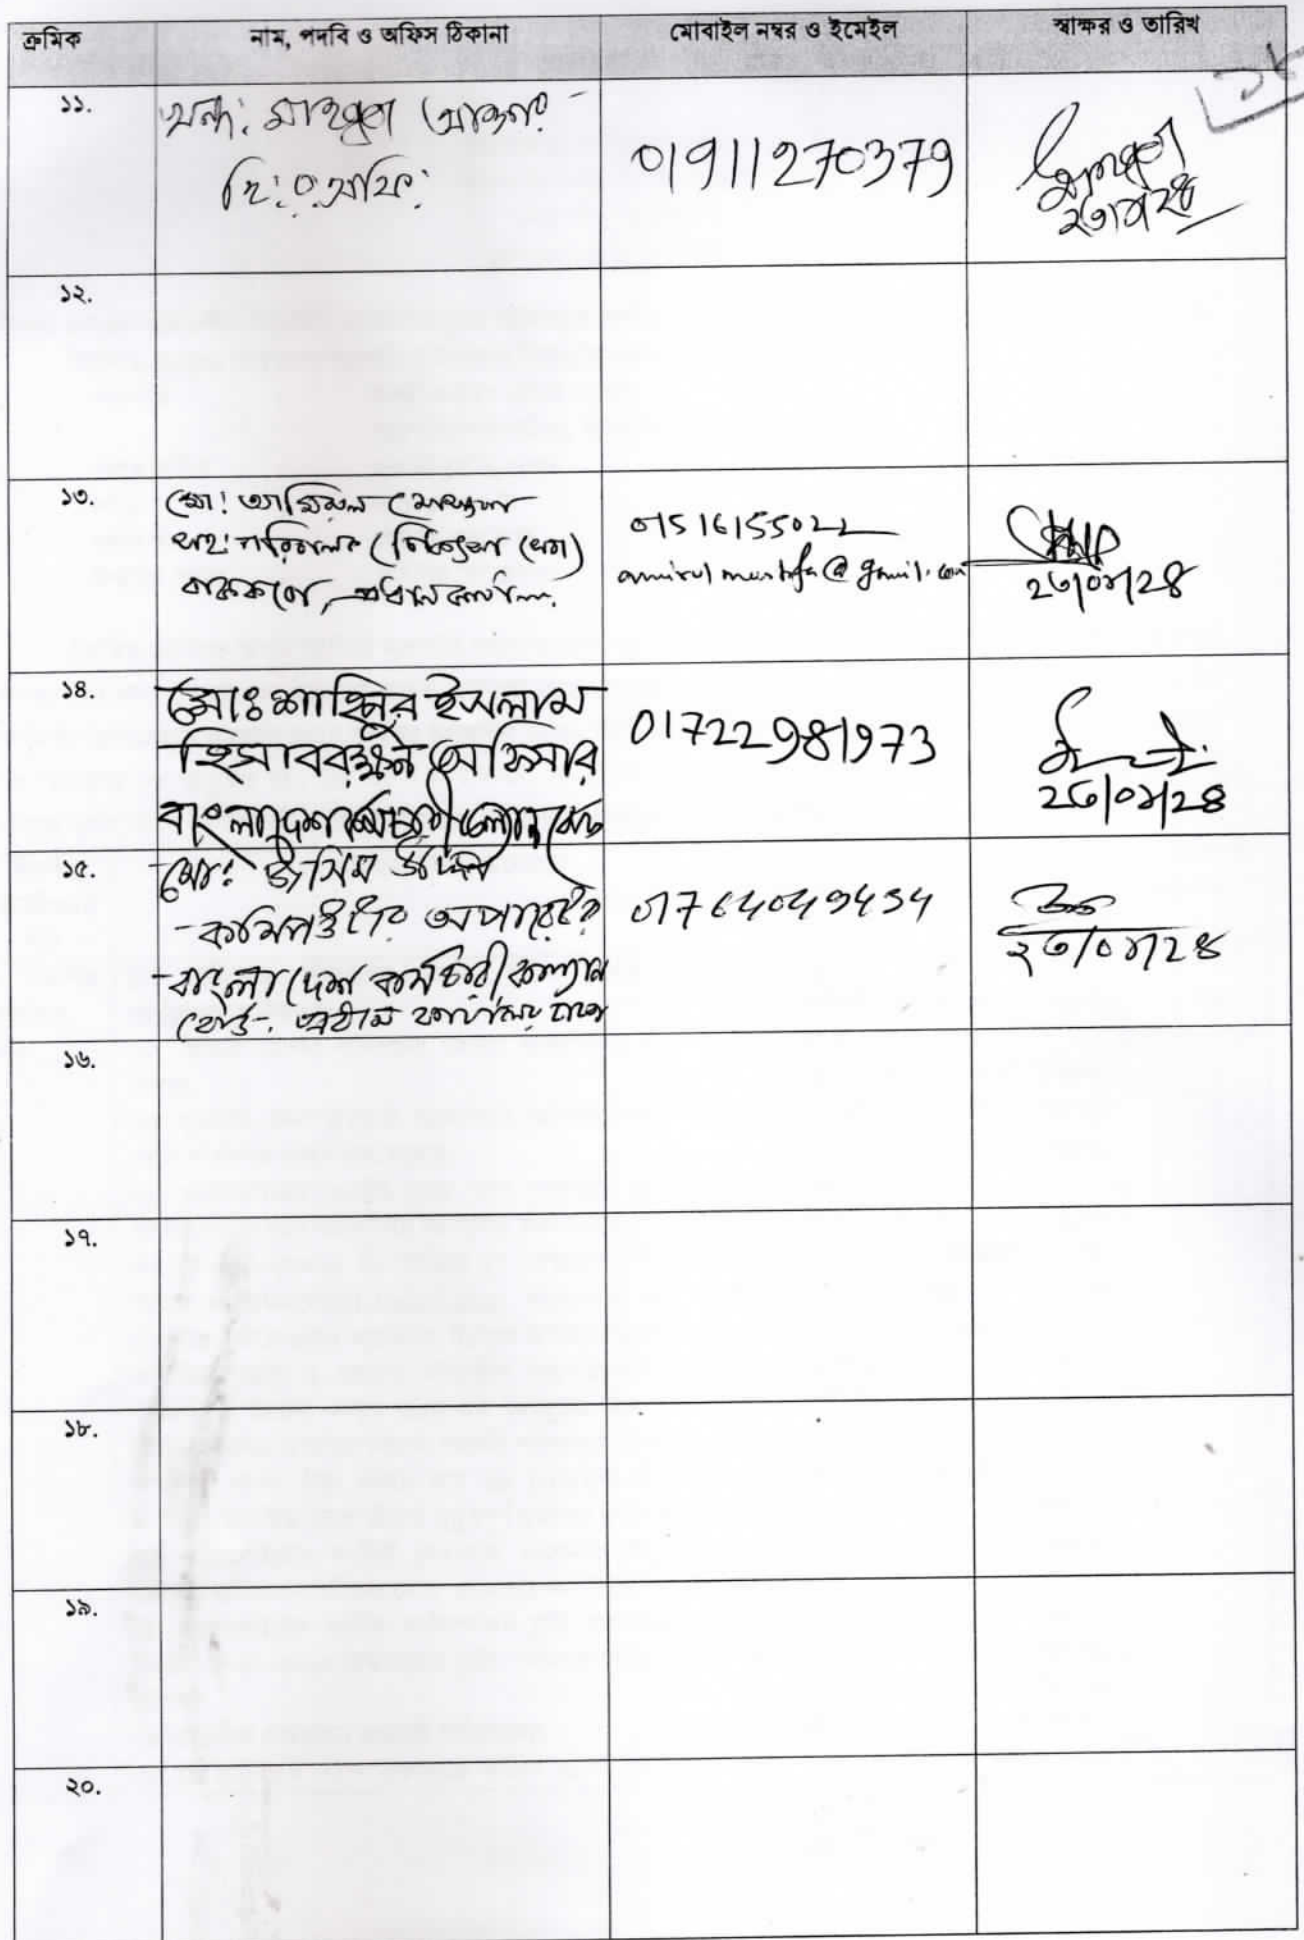 ক্রমিক নাম, পদবি ও অফিস ঠিকানা মোবাইল নম্বর ও ইমেইল স্বাক্ষর ও তারিখ
১১.
হি: র: অফি:
01911270379
১২.
১৩. মো: আমিরুল মোস্তফা
সহ: পরিচালক (চিকিৎসা সেবা)
বাককবো, প্রধান কার্যালয়
01516155022
amirul mustafa@gmail.com
২৩/০১/২৪
১৪. মোঃ শাহিনুর ইসলাম
হিসাবরক্ষণ অফিসার
বাংলাদেশ কর্মচারী কল্যাণ বোর্ড
01722981973
২৩/০১/২৪
১৫. মো: জসিম উদ্দিন
কম্পিউটার অপারেটর
বাংলাদেশ কর্মচারী কল্যাণ
বোর্ড. প্রধান কার্যালয় ঢাকা
২৩/০১/২৪
১৬.
১৭.
১৮.
১৯.
২০.